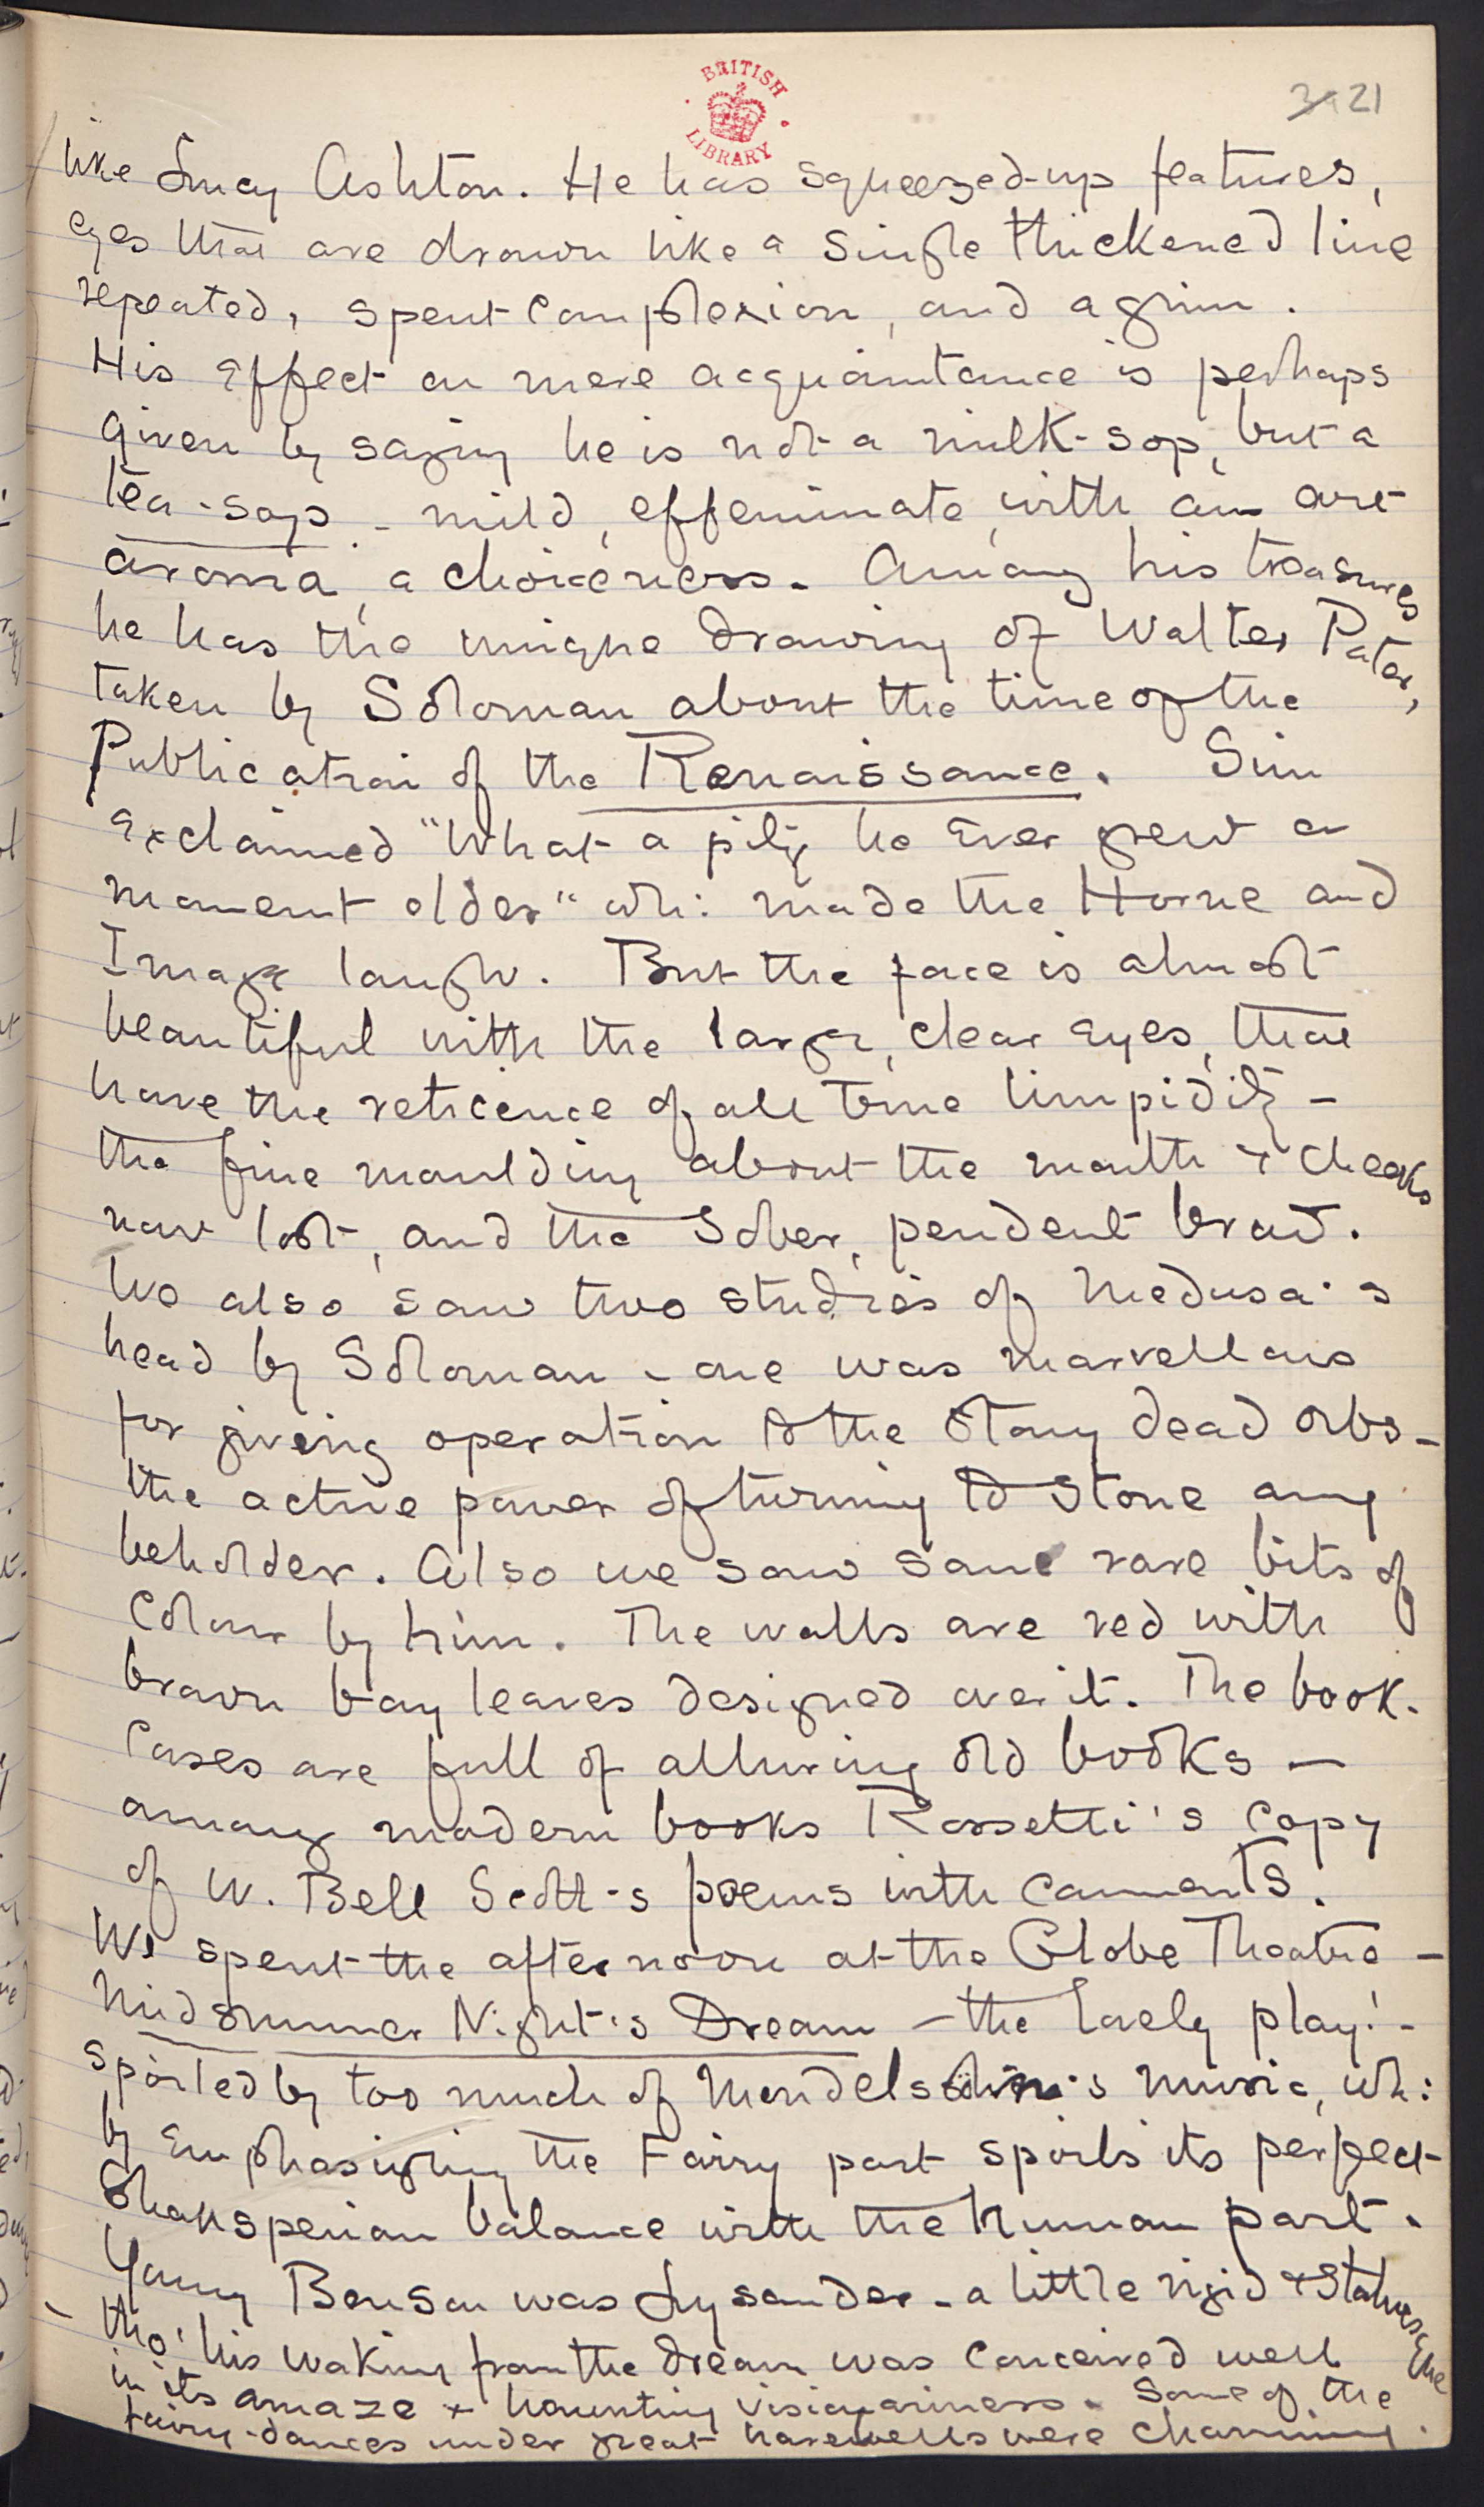 BRITISH
LIBRARY
21
like Lucy Ashton. He has squeezed-up features,
eyes that are drawn like a single thickened line
repeated, spent complexion, and a grim.
His effect on mere acquaintance is perhaps
given by saying he is not a milk-sop, but a
tea-sop - mild, effeminate, with an art
aroma, a choiceness. Among his treasures
he has the unique drawing of Walter Pater,
taken by Soloman about the time of the
Publication of the Renaissance. Sim
exclaimed "What a pity he ever grew a
moment older" wh: made the Horne and
Image laugh. But the face is almost
beautiful with the large, clear eyes, that
have the reticence of all true limpidity -
the fine moulding about the mouth & cheeks
now lost, and the sober, pendent brow.
We also saw two studies of Medusa's
head by Soloman - one was marvellous
for giving operation to the stony dead orbs -
the active power of turning to stone any
beholder. Also we saw some rare bits of
colour by him. The walls are red with
brown bay leaves designed over it. The book-
cases are full of alluring old books -
among modern books Rossetti's copy
of W. Bell Scott's poems with comments.
We spent the afternoon at the Globe Theatre -
Midsummer Night's Dream - the lovely play! -
spoiled by too much of Mendelssohn's music, wh:
by emphasizing the Fairy part spoils its perfect
Shaksperian balance with the human part.
Young Benson was Lysander - a little rigid & statuesque
tho' his waking from the dream was conceived well
in its amaze & haunting visionariness. Some of the
fairy-dances under great harebells were charming.